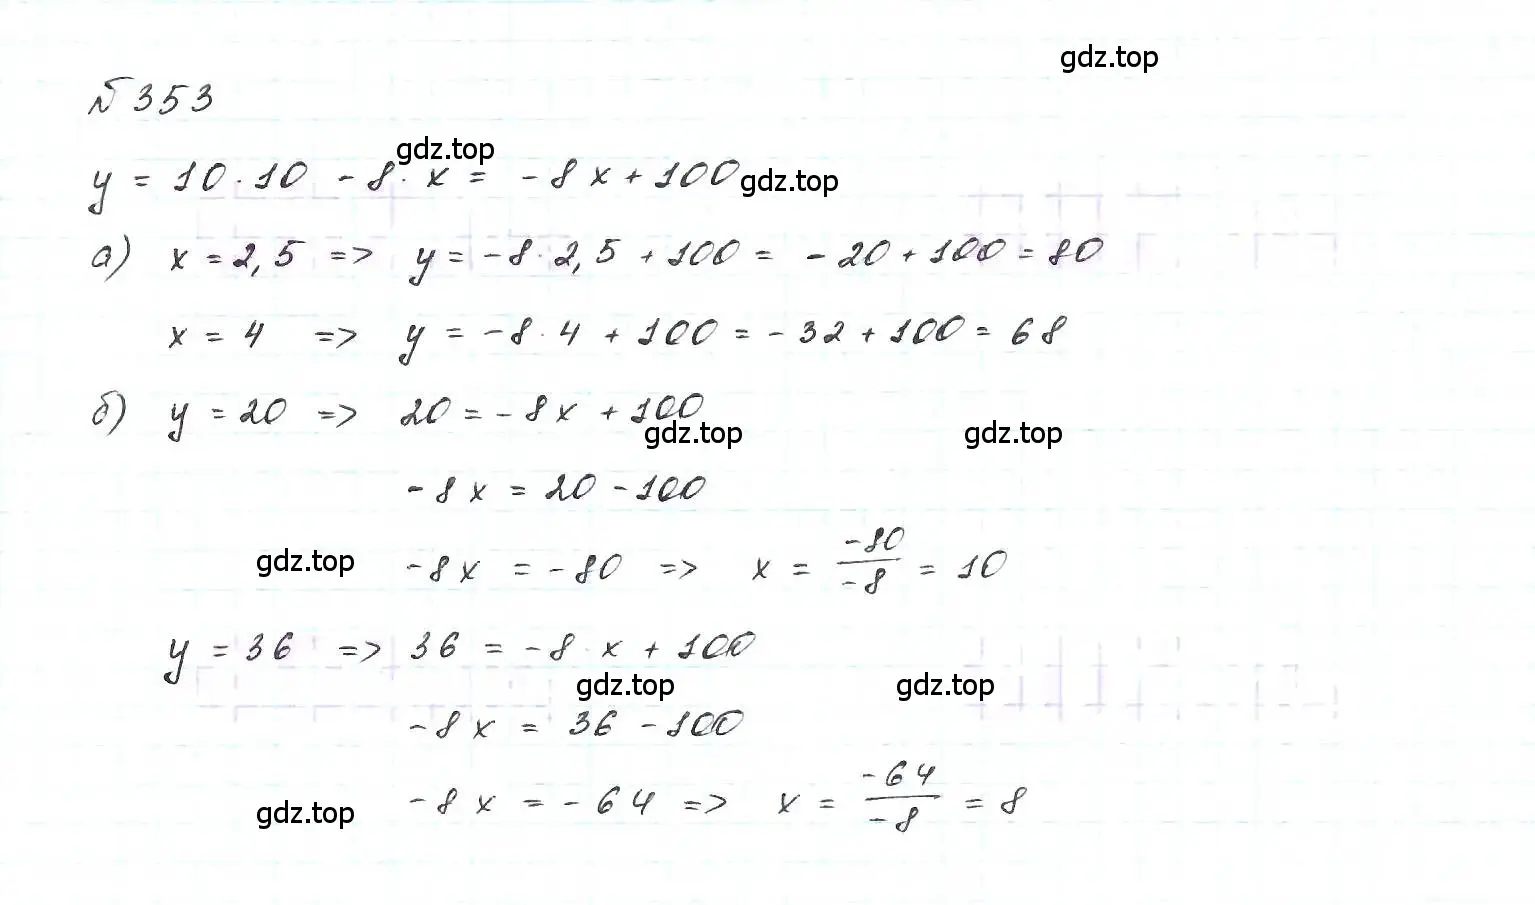 gdz.top
№353
gdz.top
y = 10·10 - 8·x = -8x + 100 gdz.top
а) x = 2,5 => y = -8·2,5 + 100 = -20 + 100 = 80
x = 4 => y = -8·4 + 100 = -32 + 100 = 68
б) y = 20 => 20 = -8x + 100
gdz.top gdz.top
-8x = 20 - 100
gdz.top -8x = -80 => x = -80/-8 = 10
y = 36 => 36 = -8·x + 100
gdz.top gdz.top
-8x = 36 - 100
gdz.top -8x = -64 => x = -64/-8 = 8